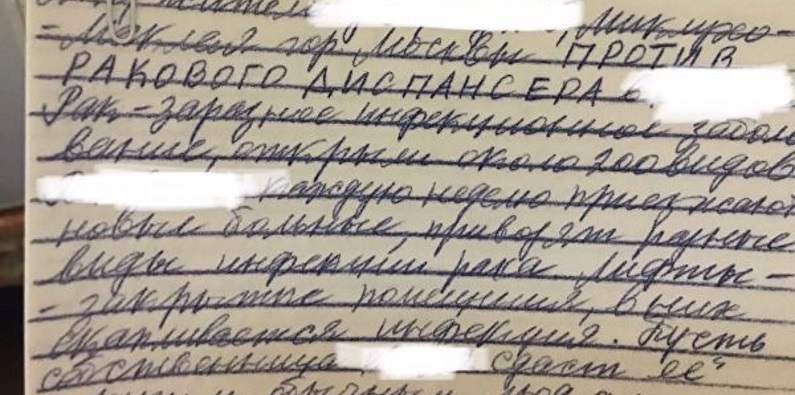 жители Миклухо-
-Маклая гор. Москвы ПРОТИВ
РАКОВОГО ДИСПАНСЕРА
Рак - заразное инфекционное забол
вание, открыли около 200 видов
каждую неделю приезжают
новые больные, привозят разные
виды инфекций рака. Лифты -
- закрытые помещения, в них
скапливается инфекция. Пусть
собственница сдаст ее